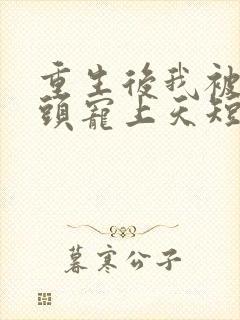 重生後我被
頭寵上天短
暮寒公子